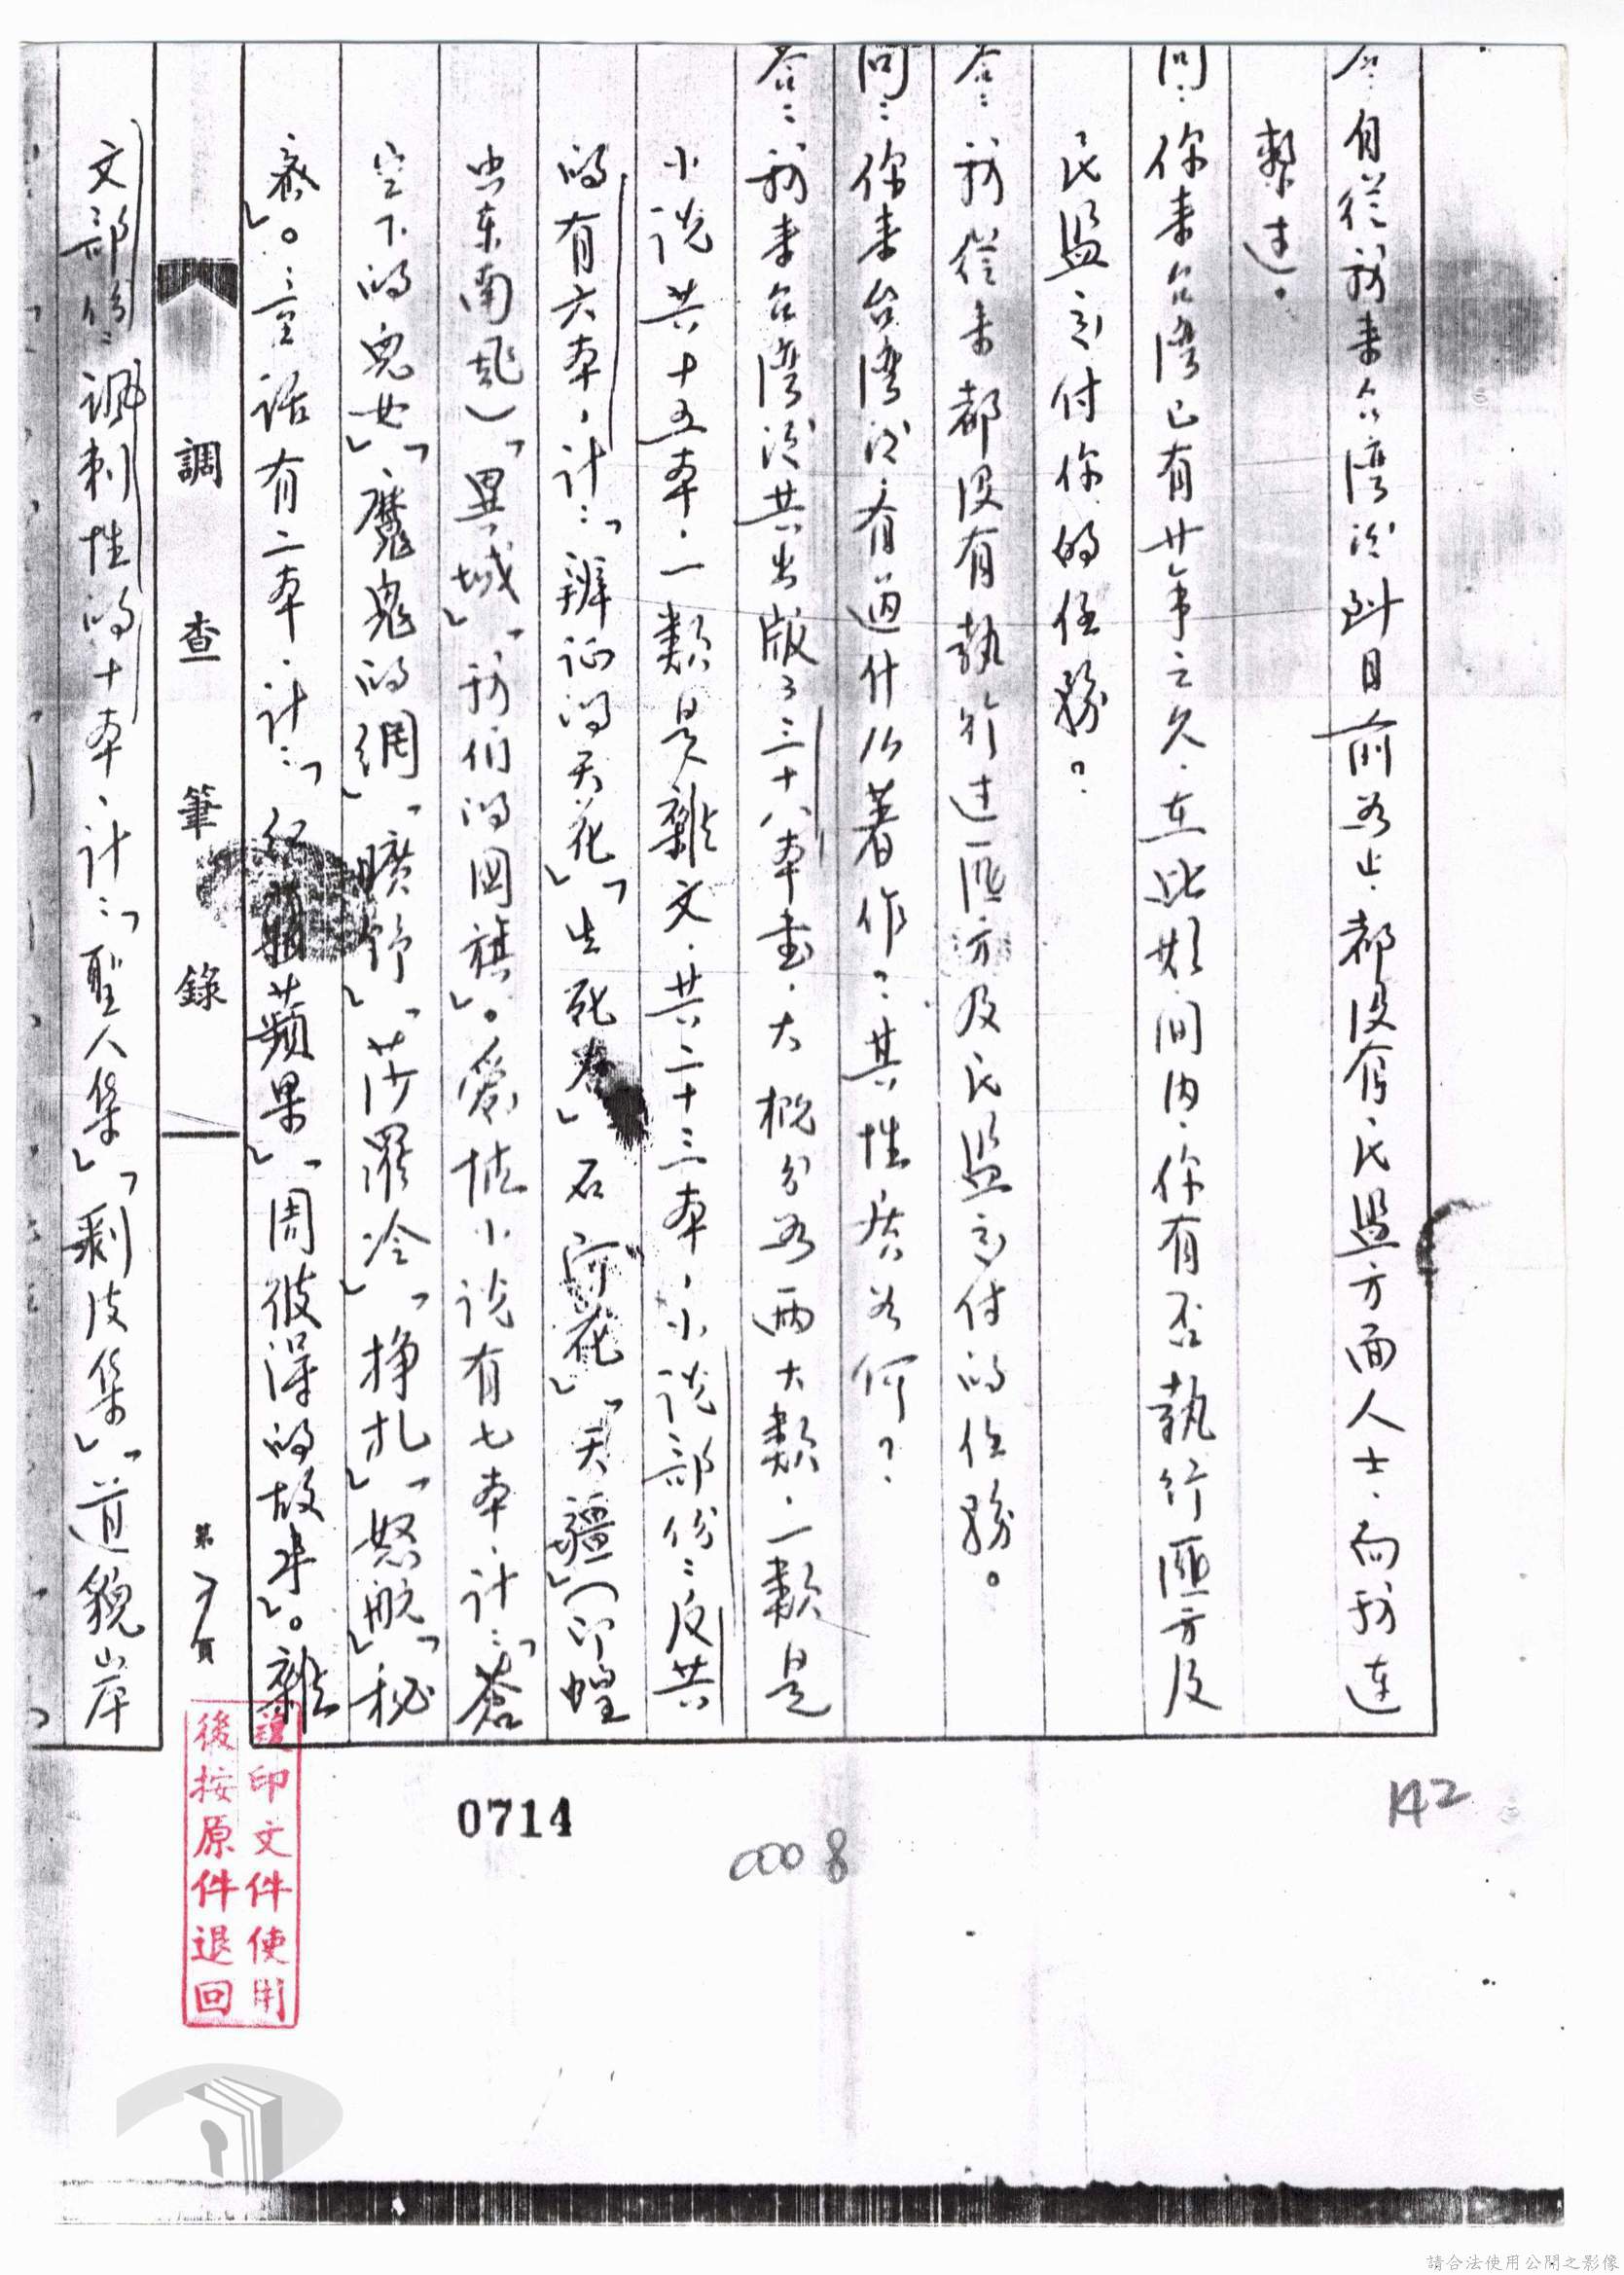 答：自從我來台灣後到目前為止，都沒有民盟方面人士，向我連
繫过。
問：你來台灣已有廿年之久，在此期間内，你有否執行匪方及
民盟交付你的任務？
答：我從來都没有執行过匪方及民盟交付的任務。
問：你來台灣後有過什么著作？其性质為何？
答：我來台灣後共出版了三十八本書，大概分為兩大類，一類是
小说共十五本，一類是雜文，共二十三本，小说部份：反共
的有六本，計：「辨証的天花」「生死㤗」石「河花」「天疆」（即蝗
虫东南飛）「異域」「我们的国旗」。愛情小说有七本，計：「蒼
空下的兒女」「魔鬼的網」「曠野」「莎羅冷」「掙扎」「怒航」「秘
密」。童話有二本，計：「红蘋蘋果」「周彼得的故事」。雜
調查筆錄
第 頁
文部份：諷刺性的十本，計：「聖人集」「剝皮集」「道貌岸
複印文件使用
後按原件退回
0714
0008
142
請合法使用公開之影像